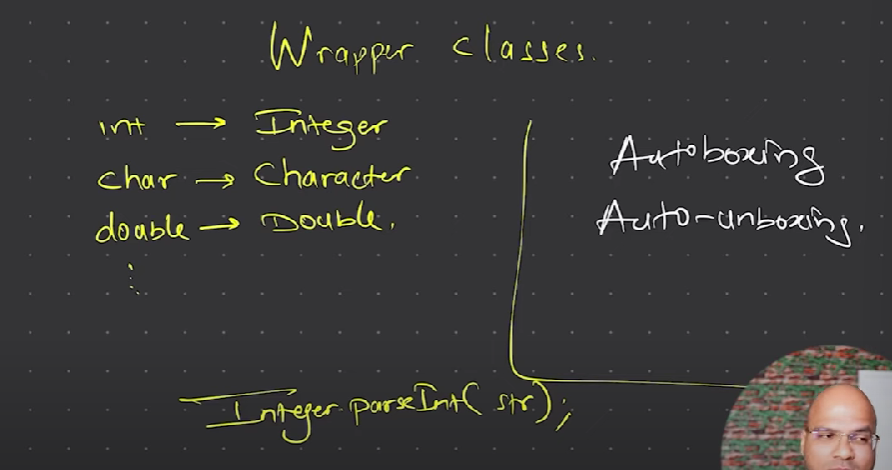 Wrapper classes.
int → Integer
char → Character
double → Double.
⋮
Autoboxing
Auto-unboxing.
Integer.parseInt( str);